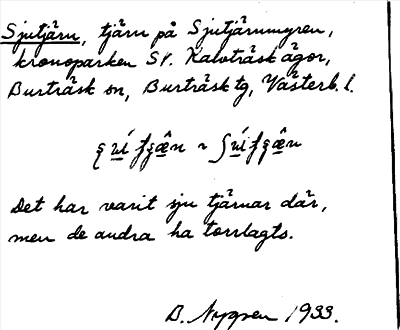 Sjutjärn, tjärn på Sjutjärnmyren,
kronoparken St. Kalvträsk ägor,
Burträsk sn, Burträsk tg, Västerb. l.
Det har varit sju tjärnar där,
men de andra ha torrlagts.
B. Nygren 1933.